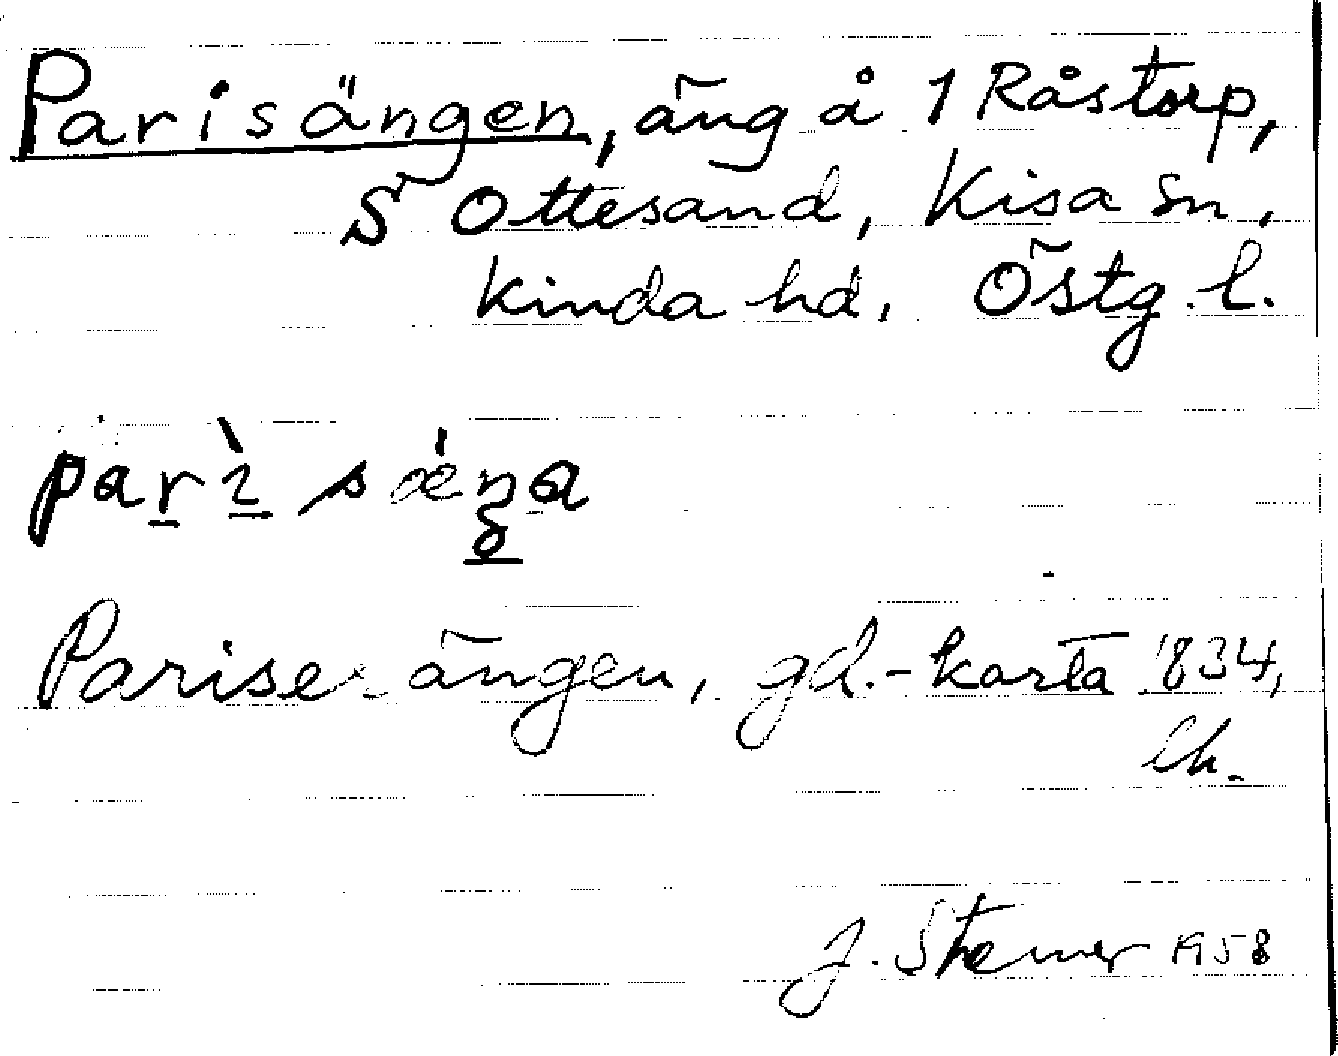 Parisängen, äng å 1 Råstorp,
S Ottesand, Kisa sn,
Kinda hd, Östg. l.
parì sǽŋa
Parise ängen, gd.-karta 1834,
J. 1958